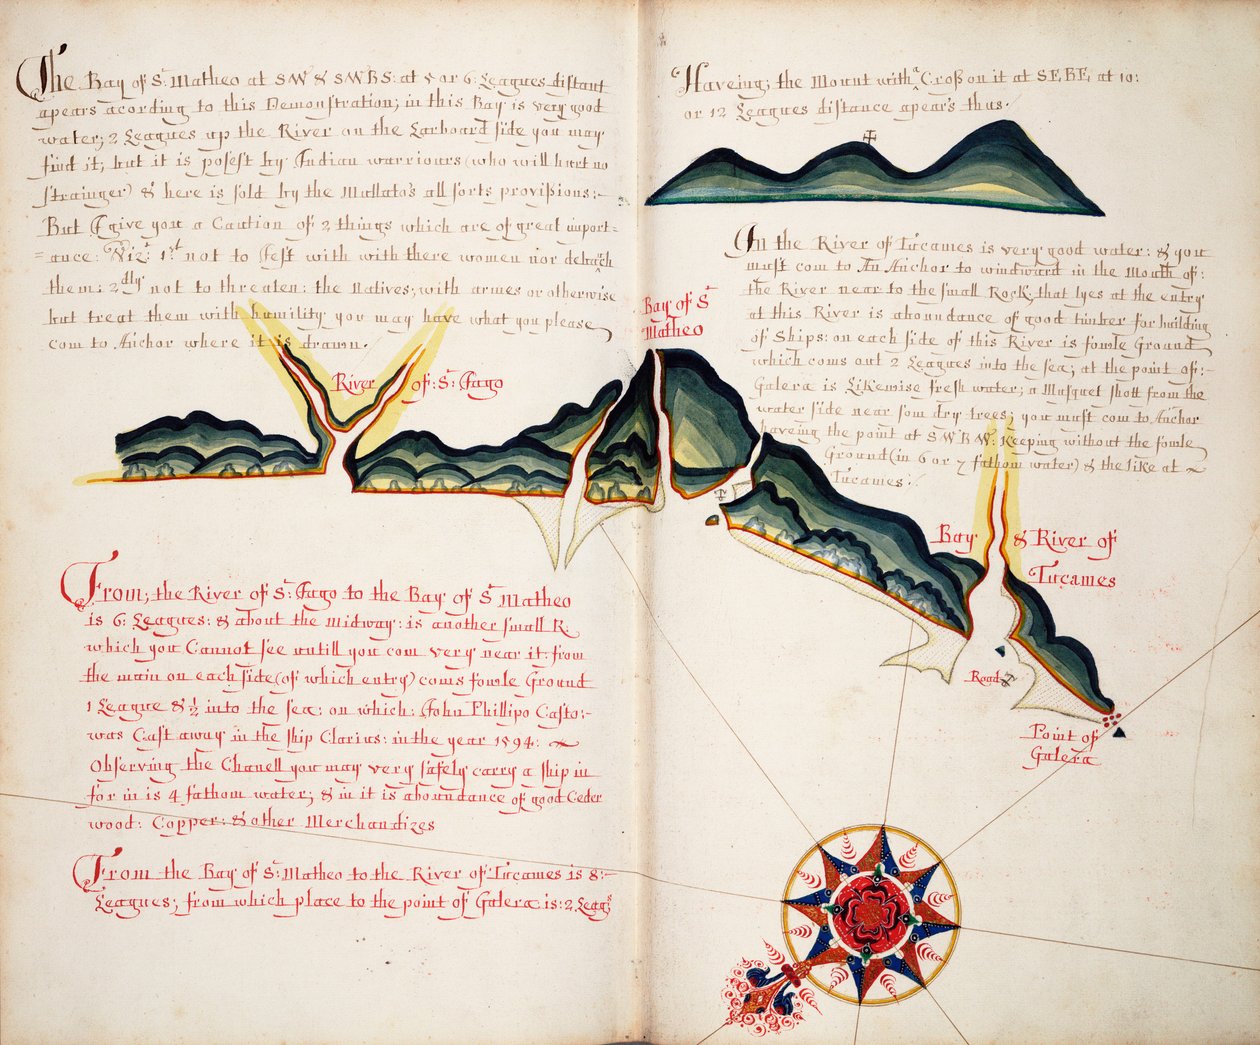 The Bay of St Matheo at SW & SWBS: at 5 or 6: Leagues distant
apears acording to this Demonstration; in this Bay is very good
water; 2 Leagues up the River on the Larboard side you may
find it; but it is posest by Indian warriours (who will hurt no
strainger) & here is sold by the Mullato's all sorts provisions:-
But I give you a Caution of 2 things which are of great import-
=ance: Viz:t 1st not to Jest with with there women nor debauch
them: 2dly not to threaten: the Natives; with armes or otherwise
but treat them with humility you may have what you please
com to Anchor where it is drawn.
Haveing; the Mount with a Cross on it at SEBE, at 10:
or 12 Leagues distance apears thus.
In the River of Tucames is very good water: & you
must com to An Anchor to windward in the Mouth of:
the River near to the small Rock, that lyes at the entry
at this River is aboundance of good timber for building
of Ships: on each side of this River is fowle Ground
which coms out 2 Leagues into the sea; at the point of:-
Galera is Likewise fresh water; a Musquet shott from the
water side near som dry trees; you must com to Anchor
haveing the point at SWBW. Keeping without the fowle
Ground (in 6 or 7 fathom water) & the like at ~
Tucames.
Bay of St
Matheo
River of: St: Jago
Bay & River of
Tucames
Road
Point of
Galera
From; the River of St: Jago to the Bay of St Matheo
is 6: Leagues: & about the midway: is another small R:
which you Cannot see untill you com very near it. from
the main on each side (of which entry) coms fowle Ground
1 League & ½ into the sea: on which: John Phillipo Casto:-
was Cast away in the ship Clarius: in the year 1594: ~
Observing the Chanell you may very safely carry a ship in
for in is 4 fathom water; & in it is aboundance of good Ceder
wood: Copper: & other Merchandizes
From the Bay of St: Matheo to the River of Tucames is 8:-
Leagues; from which place to the point of Galera is: 2 Leags